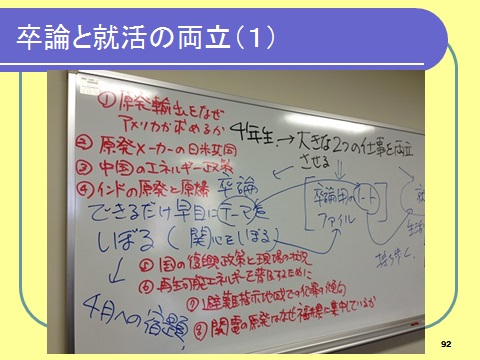 卒論と就活の両立(1)
①原発輸出をなぜ
アメリカが求めるか
4年生→大きな2つの仕事を両立
させる
②原発メーカーの日米共同
③中国のエネルギー政策
④インドの原発と原爆
卒論
できるだけ早目にテーマを
しぼる(関心をしぼる)
[卒論用のノート
ファイル]
就
生活
持ち歩く
⑤国の復興政策と現場の状況
⑥再生可能エネルギーを普及するために
⑦避難指示地域での
⑧関電の原発はなぜ福井県に集中しているか
4月への宿題
92